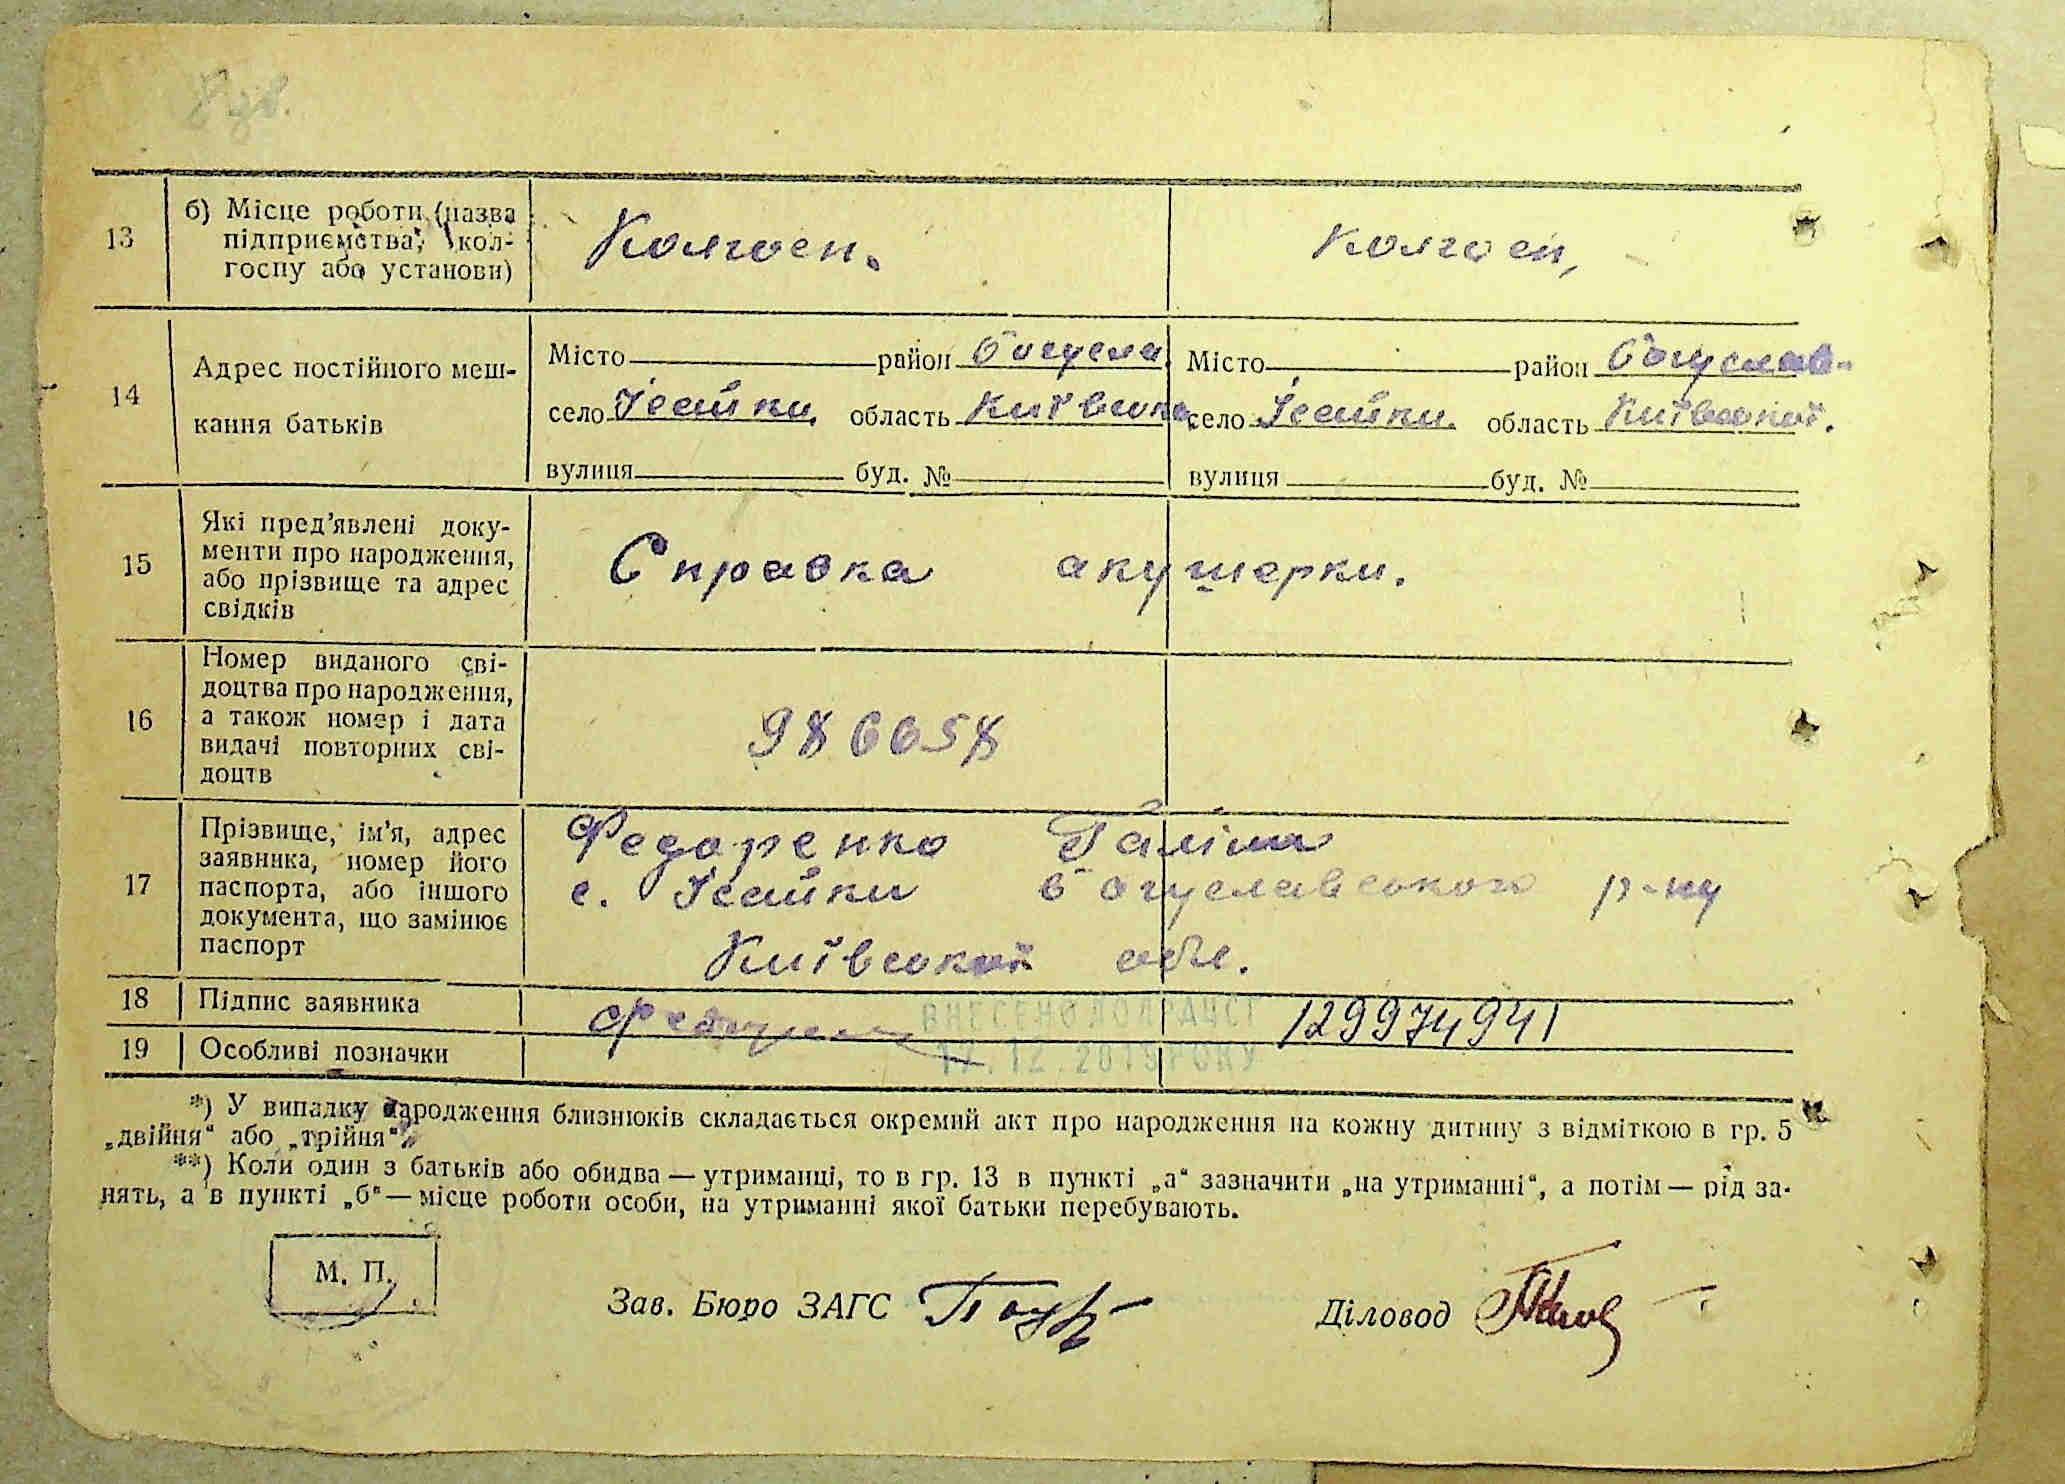 8 зв.
13
б) Місце роботи (назва
підприємства, кол-
госпу або установи)
Колгосп.
Колгосп,
14
Адрес постійного меш-
кання батьків
Місто район Богусла
село Ісайки. область Київсько
вулиця буд. №
Місто район Богуслав-
село Ісайки. область Київської.
вулиця буд. №
15
Які пред’явлені доку-
менти про народження,
або прізвище та адрес
свідків
Справка акушерки.
16
Номер виданого сві-
доцтва про народження,
а також номер і дата
видачі повторних сві-
доцтв
986658
17
Прізвище, ім’я, адрес
заявника, номер його
паспорта, або іншого
документа, що замінює
паспорт
Федоренко Галіна
с. Ісайки Богуславського р-ну
Київської обл.
18 Підпис заявника
ВНЕСЕНО ДО ДРАЦСГ
129974941
19 Особливі позначки
17.12.2019 РОКУ
*) У випадку народження близнюків складається окремий акт про народження на кожну дитину з відміткою в гр. 5
„двійня“ або „трійня“.
**) Коли один з батьків або обидва — утриманці, то в гр. 13 в пункті „а“ зазначити „на утриманні“, а потім — рід за-
нять, а в пункті „б“ — місце роботи особи, на утриманні якої батьки перебувають.
М. П.
Зав. Бюро ЗАГС
Діловод